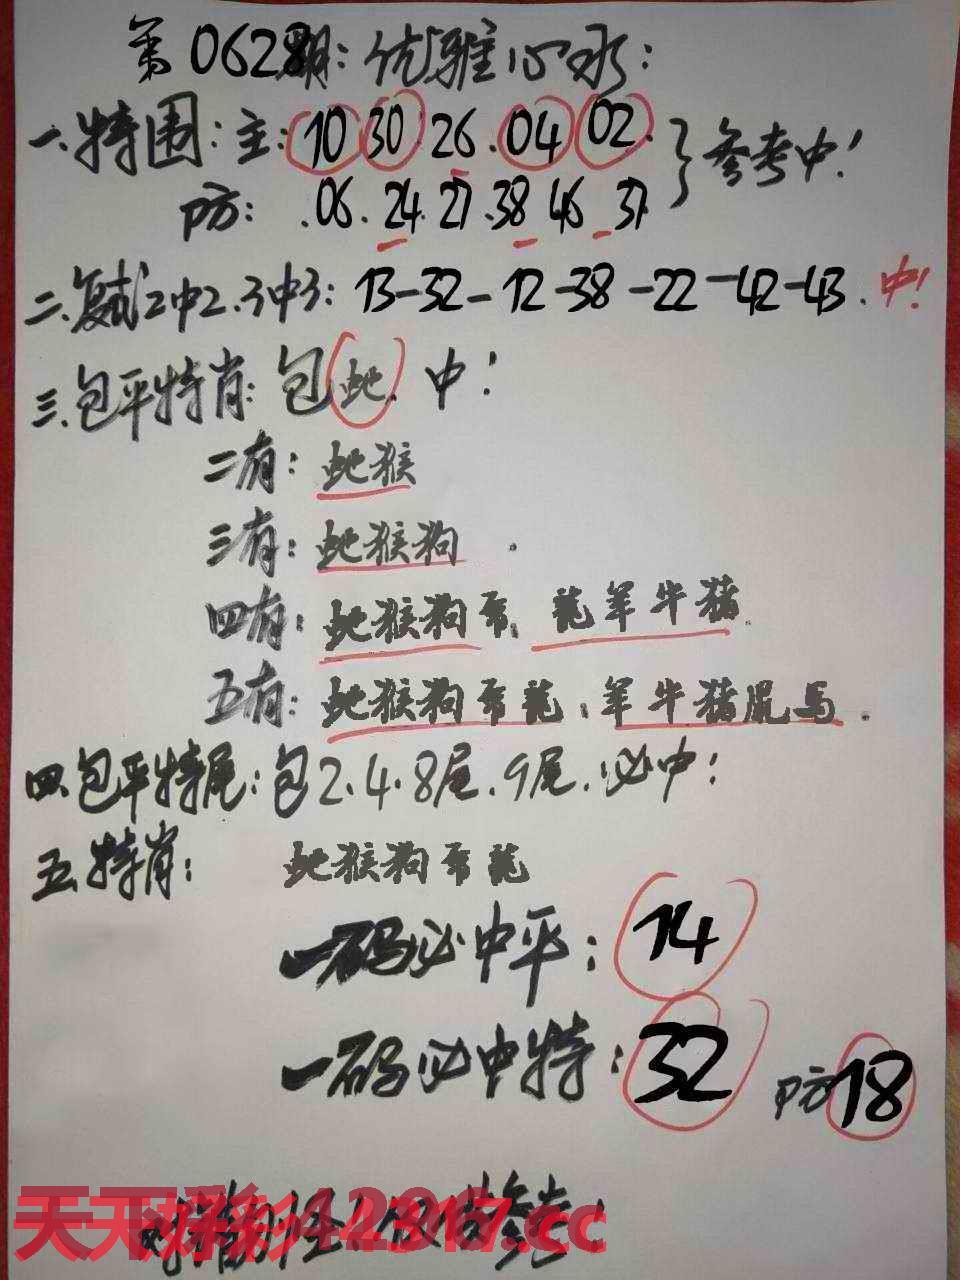 第0628期:优雅心水:
一.特围:主:10 30 26.04 02.
防:.06.24.27.38 46 37
参考中!
二.复式2中2.3中3:13-32-12-38-22-42-43.中!
三.包平特肖:包蛇.中!
二有:蛇猴
三有:蛇猴狗.
四有:蛇猴狗布.龍羊牛猪.
五有:蛇猴狗布龍:羊牛猪鼠马.
四.包平特尾:包2.4.8尾.9尾.必中!
五.特肖:蛇猴狗布龍
一码必中平:14
一码必中特:32 防18
天下彩1.2317.cc